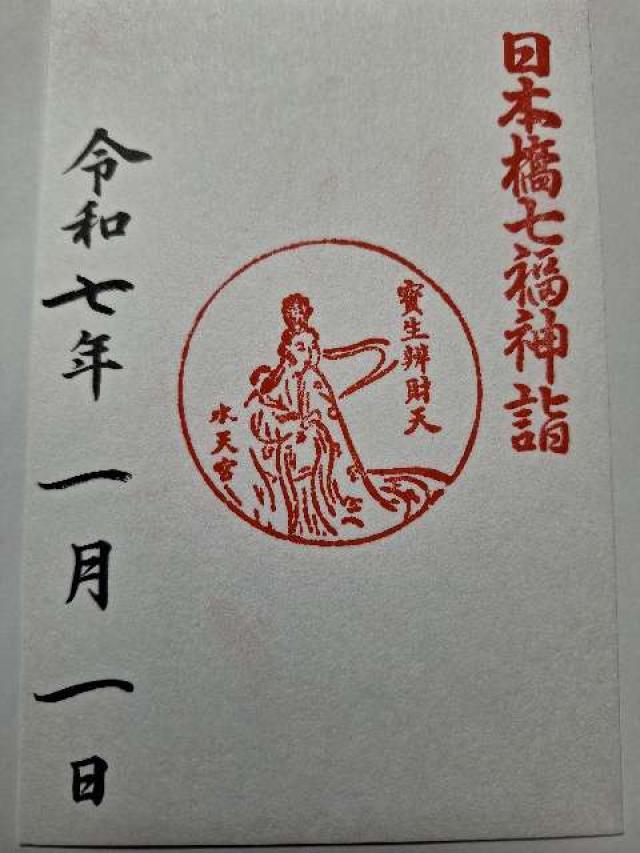 日本橋七福神詣
寳生辨財天
水天宮
令和七年一月一日